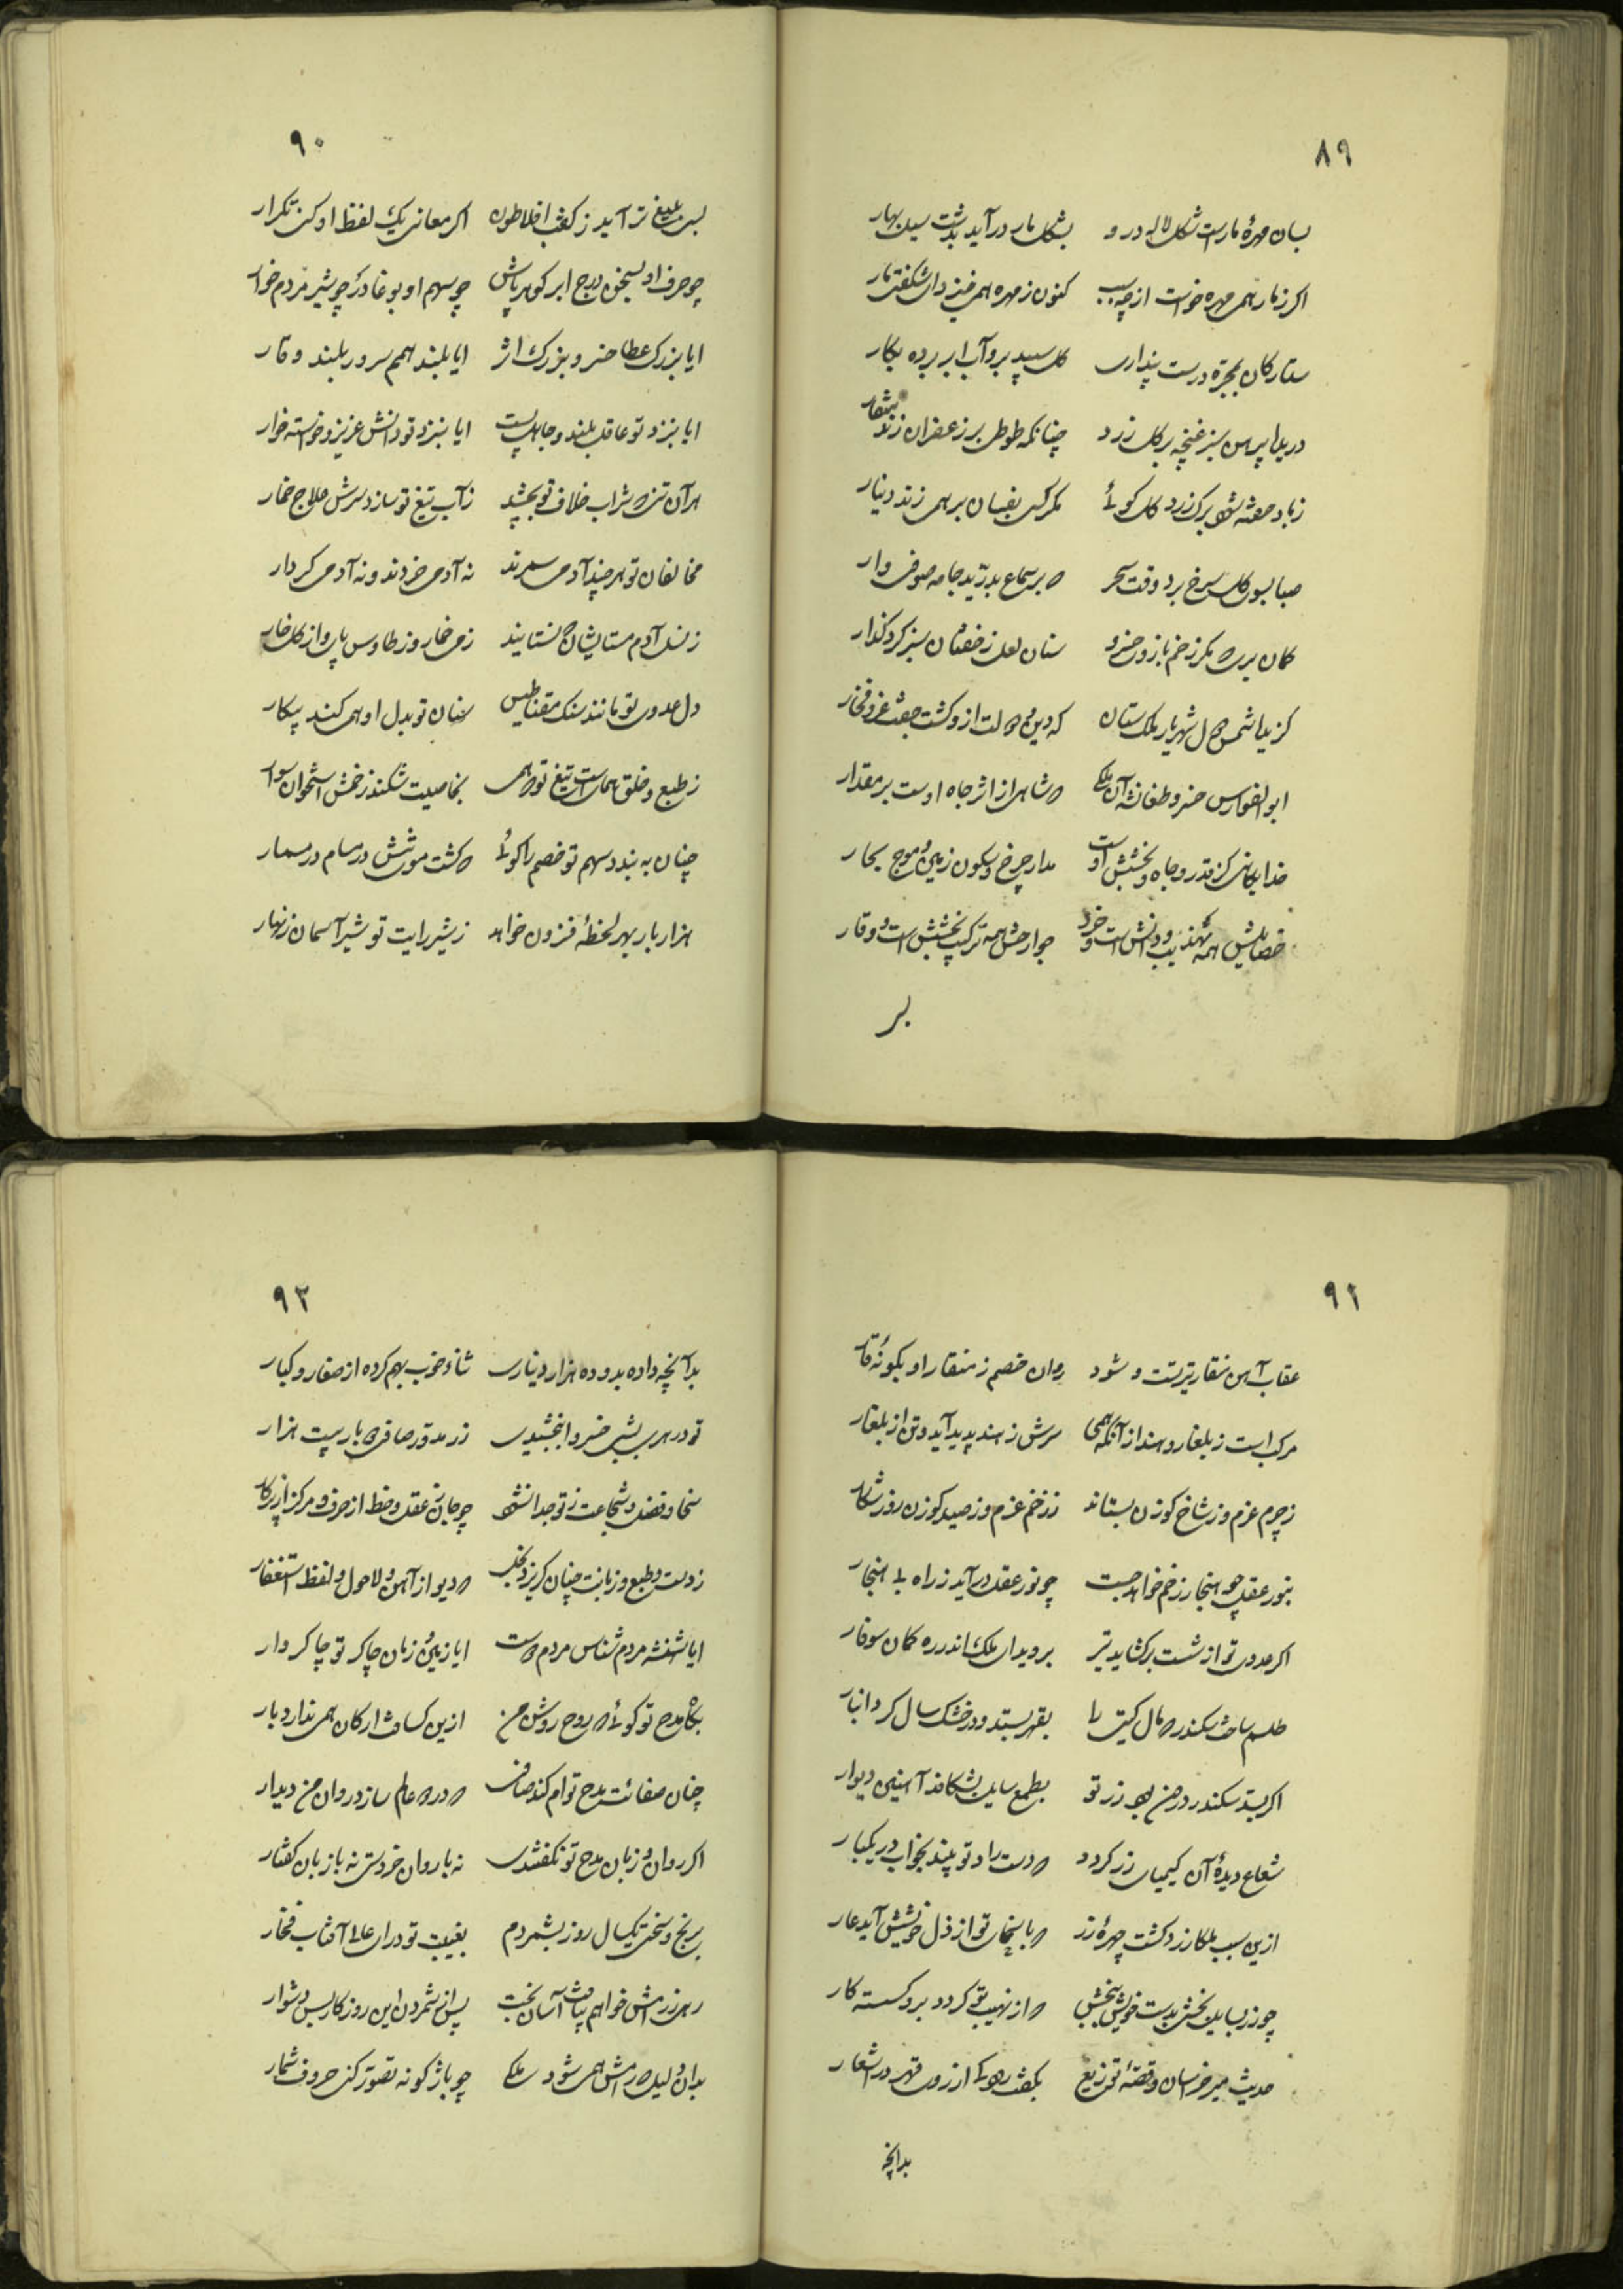 ۸۹
بسان مهرهٔ مارست شکل لاله درو بشکل مار درآید بدشت سیل بهار
اگر ز مار همی مهره خواست از چه سبب کنون ز مهره همی خیزد ای شگفتی مار
ستارگان مجره درست پنداری گل سپید بروآب ابر برده بکار
دریده پیرهن سبز غنچه بر گل زرد چنانکه طوطی بر زعفران زند منقار
ز باد صفته شود برگ زرد گل گوئی مگر کسی بفسان برهمی زند دینار
صبا بسوی گل سرخ برد وقت سحر که بر سماع بدرید جامه صوفی وار
کمان بری که مگر زخم بازوی خسرو سنان لعل ز خفتان سبز کرد گذار
گزیده شمس دول شهریار ملک ستان که دین و دولت ازو گشت جفت عز و فخار
ابوالفوارس خسرو طغانشه آن ملکی که شاهی از اثر جاه اوست بر مقدار
خدایگانی کز قدر و جاه و بخشش اوست مدار چرخ و سکون زمین و موج بحار
خصایلش همه تهذیب و دانش است و خرد جوارحش همه ترکیب بخشش است و وقار
بر
۹۰
بسی بلیغ تر آید ز کعب افلاطون اگر معانی یک لفظ او کنی تکرار
چو حرف او بسخن درج ابر گوهر پاش چو سهم او بوغا در چو شیر مردم خوار
ایا بزرگ عطا خسرو بزرگ اثر ایا بلند همم سرور بلند وقار
ایا بنزد تو عاقل بلند و جاهل پست ایا بنزد تو دانش عزیز و خواسته خوار
هر آن تنی که شراب خلاف تو بچشید ز آب تیغ تو سازد سرش علاج خمار
مخالفان تو هر چند آدمی سیرند نه آدمی خردند و نه آدمی کردار
ز نسل آدم مستای‌شان که نستایند ز می خمار و ز طاوس پای و از گل خار
دل عدوی تو مانند سنگ مقناطیس سنان تو بدل او همی کند پیکار
ز طبع و خلق همای است تیغ تو که همی بخاصیت شکند زخمش استخوان سوار
چنان به بندد سهم تو خصم را گوئی که گشت مویش در مسام در مسمار
هزار بار بهر لحظهٔ فزون خواهد ز شیر رایت تو شیر آسمان زنهار
۹۱
عقاب آهن منقار تیر تست و شود روان خصم ز منقار او بگونهٔ قار
مرکب است ز بلغار و هند از آنکه همی سرش ز هند پدید آید و تن از بلغار
ز چرم عزم و ز شاخ گوزن بستاند ز زخم عزم و ز صید گوزن روز شکار
بنور عقل چو هنجار زخم خواهد جست چو نور عقل درآید ز راه بی هنجار
اگر عدوی تو از شست برگشاید تیر بروید از ملک اندر ره کمان سوفار
طلسم ساخت سکندر که مال گیتی را بقهر بستد و در خشک سال کرد انبار
اگر بدی سکندر درین بهی زر تو بطمع سایل بشکافد آهنین دیوار
شعاع دیدهٔ آن کیمیای زر گردد که دست راد تو بیند بخواب در یکبار
ازین سبب ملکا زرد گشت چهرهٔ زر که با سخای تو از ذل خویشش آید عار
چو زر بسایل بخشی بدست خویش ببخش که از نهیب تو گردد برو گسسته کار
حدیث میر خراسان و قصهٔ توزیع بگفت رودکی از روی فخر در اشعار
بدانچه
۹۲
بدانچه داده بدو ده هزار دیناری ثنا خوب بهم کرده از صغار و کبار
تو در هری بشبی خسروا ببخشیدی زر مدور صافی دو بار بیست هزار
سخا و فضل و شجاعت ز تو جدا نشود چو جان ز عقل و خط از حرف و مرکز از پرگار
ز دست و طبع و زبانت چنان گریزد بخل که دیو از آهن و لاحول و لفظ استغفار
ایا شهنشه مردم شناس مردم دوست ایا زمین و زمان چاکر تو چاکر وار
بگاه مدح تو گوئی که روح روشن من ازین کسافت ارکان همی ندارد بار
چنان صفائت مدح توام کند صافی که در دو عالم سازد روان من دیدار
اگر روان و زبان مدح تو نگفتندی نه با روان خردستی نه با زبان گفتار
برنج و سختی یکسال روز بشمردم بغیبت تو در ای علا آفتاب فخار
رهی ز رامش خواهم بیافت آسان بخت پس از شمردن این روزگار بس دشوار
بدان دلیل که رامش همی شود ملکی چو باژگونه تصور کنی حروف شمار